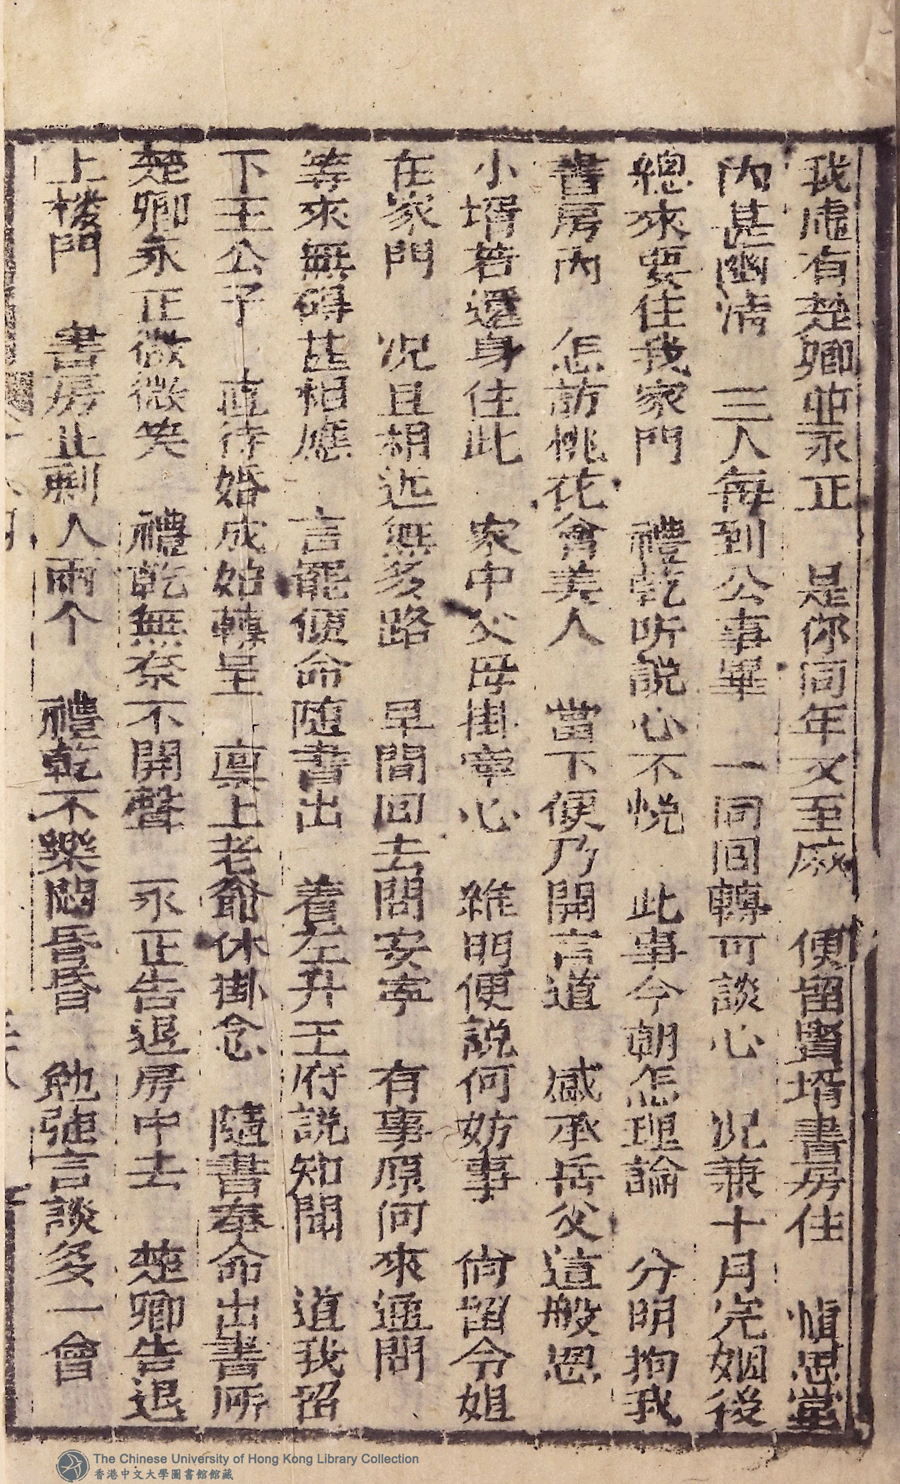 我虛有楚卿並永正　是你同年又至麻　便留賢壻書房住　愼思堂
內甚幽淸　三人每到公事畢　一同回轉可談心　况兼十月完姻後
總來要住我家門　禮乾听說心不悅　此事今朝怎理論　分明拘我
書房內　怎訪桃花會美人　當下便乃開言道　感承岳父這般恩
小壻若還身住此　家中父母掛牽心　維明便說何妨事　尙留令姐
在家門　况且相近無多路　早間回去問安寧　有事原何來通問
等來無碍甚相應　言罷便命隨書出　着左升王府說知聞　道我留
下王公子　直待婚成始轉呈　禀上老爺休掛念　隨書奉命出書所
楚卿永正微微笑　禮乾無奈不開聲　永正告退房中去　楚卿告退
上楼門　書房止剩人兩个　禮乾不樂悶昏昏　勉强言談多一會
The Chinese University of Hong Kong Library Collection
香港中文大學圖書館館藏